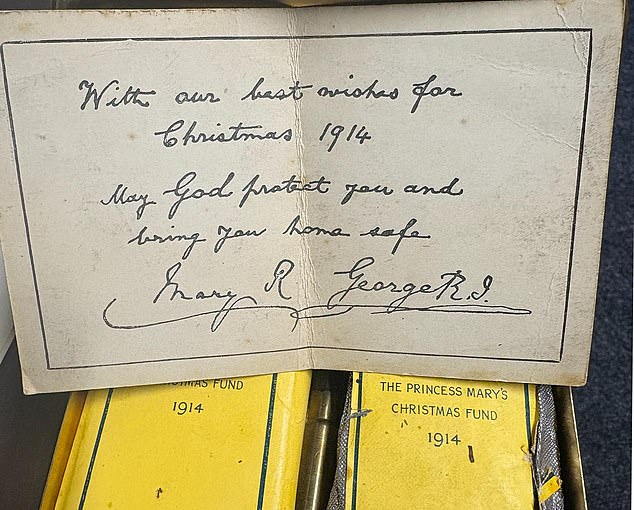 With our best wishes for
Christmas 1914
May God protect you and
bring you home safe
Mary R George R.I.
FUND
1914
THE PRINCESS MARY'S
CHRISTMAS FUND
1914